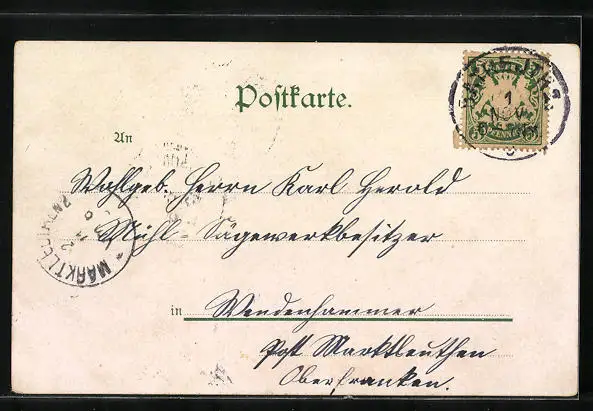 Postkarte.
1
NOV
5 PFENNIG 5
An
Wohlgeb. Herrn Karl Herold
Mühl- Sägewerkbesitzer
MARKTLEUTHEN
in Wendenhammer
Post Marktleuthen
Oberfranken.